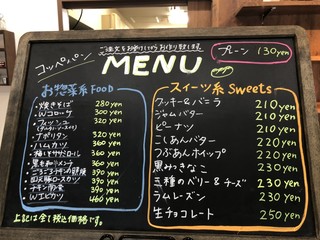 コッペパン
ご注文をお受けしてからお作り致します。
MENU
プレーン 130yen
お惣菜系 Food
・焼きそば 280yen
・Wコロッケ 300yen
・フィッシュ 320yen
・ナポリタン 320yen
・ハムカツ 360yen
390yen
390yen
390yen
390yen
・チキン南蛮 390yen
・Wエビカツ 460yen
上記は全て税込価格です。
スイーツ系 Sweets
クッキー&バニラ 210yen
ジャムバター 210yen
ピーナツ 210yen
こしあんバター 220yen
つぶあんホイップ 220yen
黒みつきなこ 230yen
三種のベリー&チーズ 230yen
ラムレーズン 230yen
生チョコレート 250yen